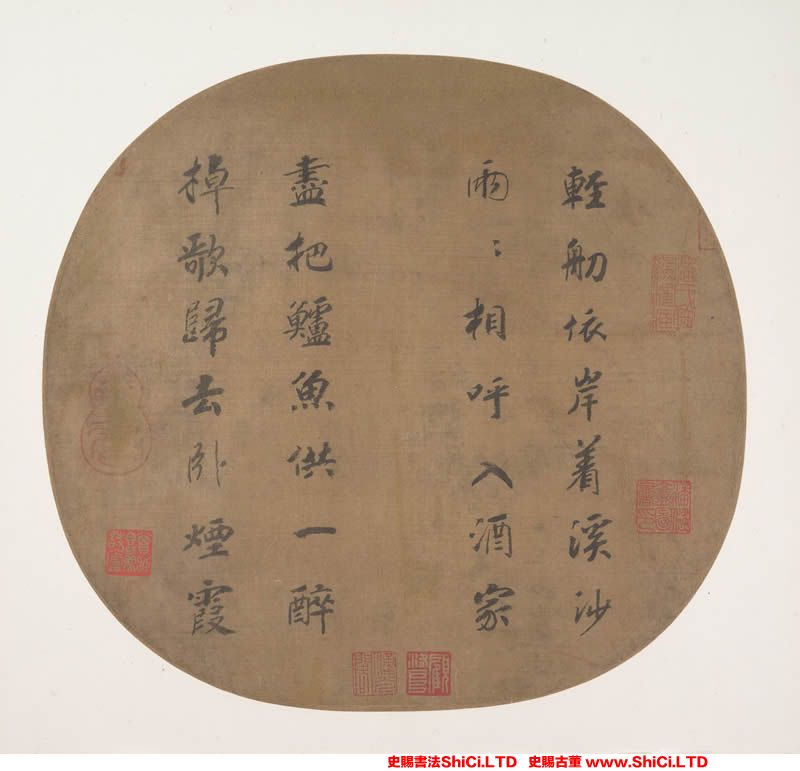 輕舠依岸着溪沙
兩〻相呼入酒家
盡把鱸魚供一醉
棹歌歸去卧煙霞
史賜書法ShiCi.LTD 史賜古董 www.ShiCi.LTD